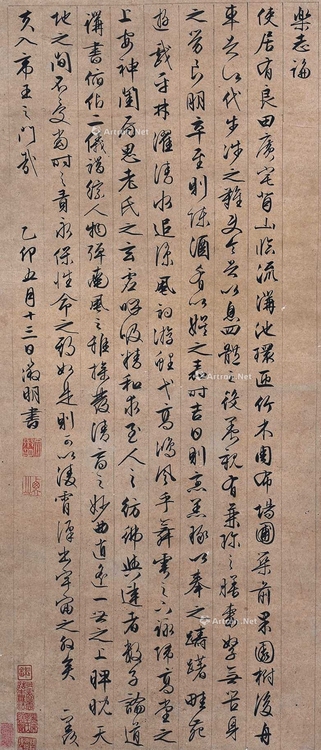 樂志論
使居有良田廣宅背山臨流溝池環匝竹木周布場圃築前果園樹後舟
車足以代步涉之難使令足以息四體之役養親有兼珍之膳妻孥無苦身
之勞良朋萃至則陳酒肴以娛之嘉時吉日則烹羔豚以奉之躊躇畦苑
遊戲平林濯清水追涼風釣游鯉弋高鴻風乎舞雩之下詠歸高堂之
上安神閨房思老氏之玄虛呼吸精和求至人之彷彿與達者數子論道
講書俯仰二儀錯綜人物彈南風之雅操發清商之妙曲逍遙一世之上睥睨天
地之間不受當時之責永保性命之期如是則可以凌霄漢出宇宙之外矣豈羨
夫入帝王之門哉
乙卯五月十三日徵明書